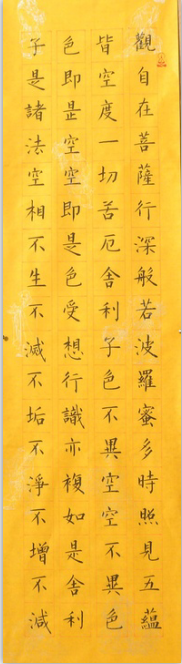 觀自在菩薩行深般若波羅蜜多時照見五蘊
皆空度一切苦厄舍利子色不異空空不異色
色即是空空即是色受想行識亦複如是舍利
子是諸法空相不生不滅不垢不淨不增不減